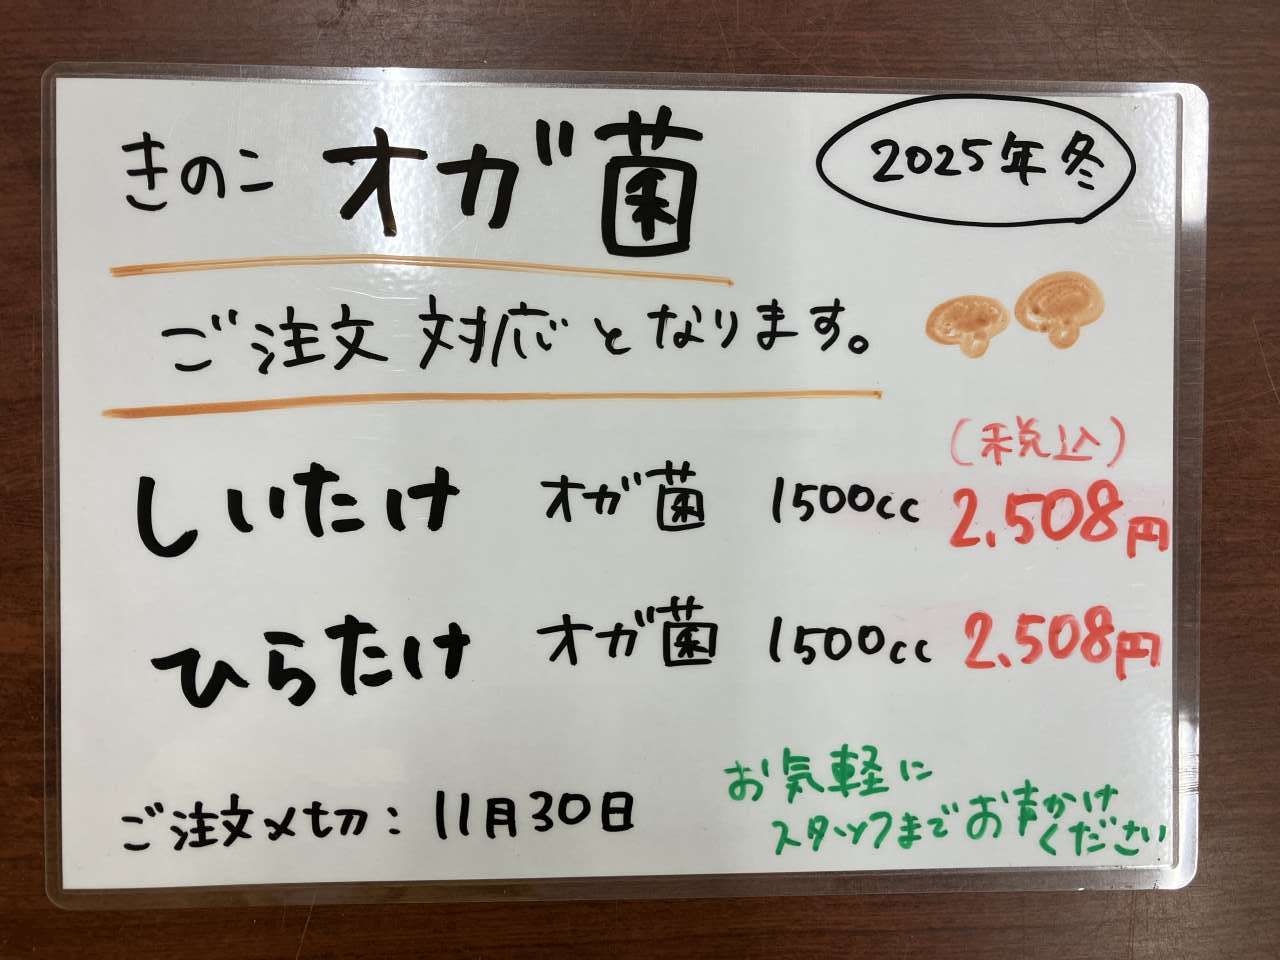 きのこ オガ菌
2025年 冬
ご注文 対応となります。
(税込)
しいたけ オガ菌 1500cc 2.508円
ひらたけ オガ菌 1500cc 2.508円
ご注文〆切: 11月30日
お気軽に
スタッフまでお声かけ
ください